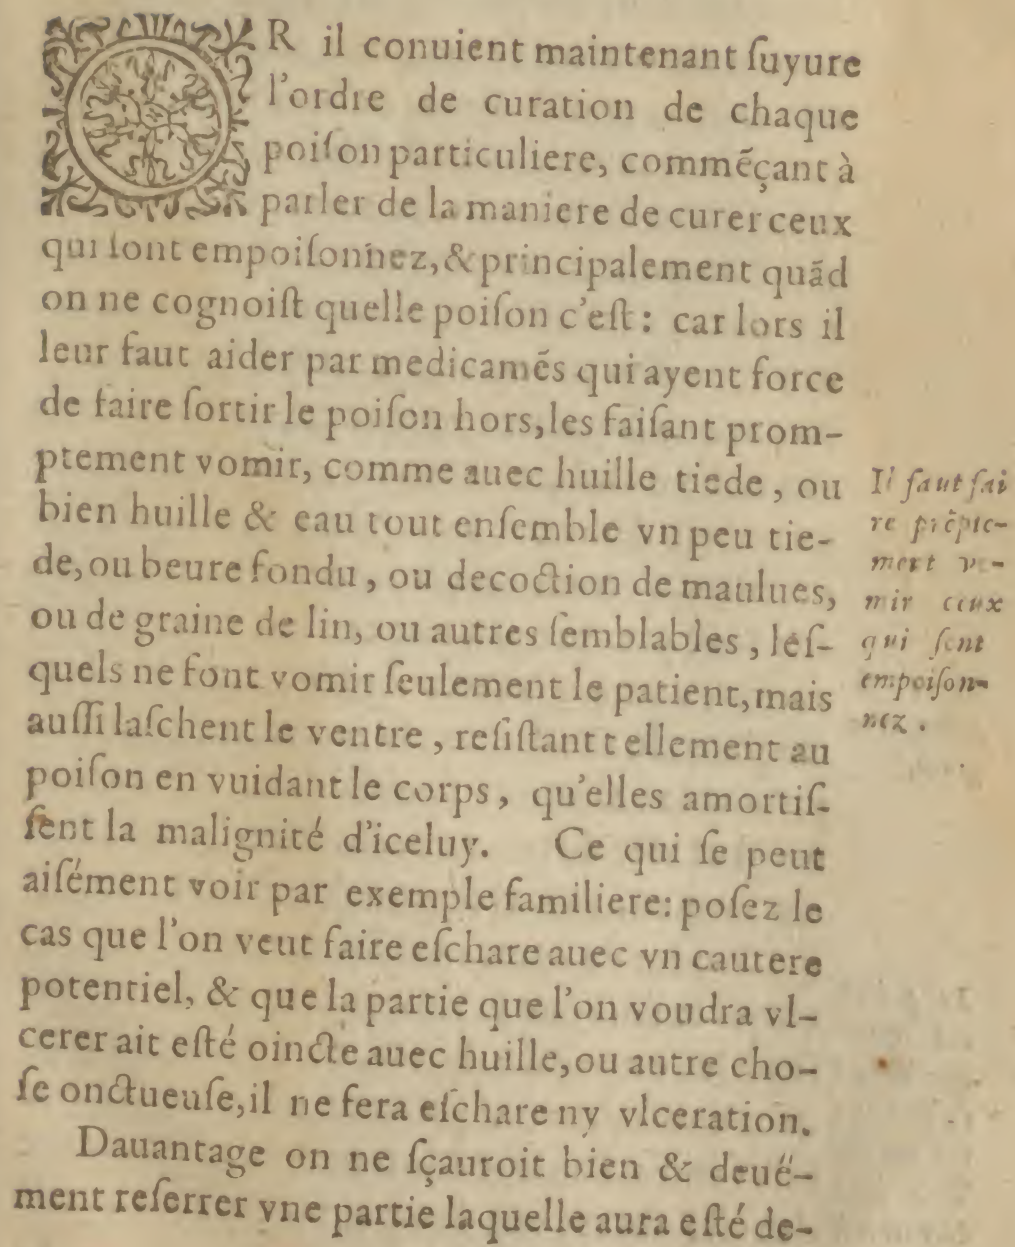 OR il conuient maintenant ſuyure
l'ordre de curation de chaque
poiſon particuliere, commẽçant à
parler de la maniere de curer ceux
qui ſont empoiſonnez, & principalement quãd
on ne cognoiſt quelle poiſon c'eſt: car lors il
leur faut aider par medicamẽs qui ayent force
de faire ſortir le poiſon hors, les faiſant prom-
ptement vomir, comme auec huille tiede, ou
bien huille & eau tout enſemble vn peu tie-
de, ou beure fondu, ou decoction de maulues,
ou de graine de lin, ou autres ſemblables, leſ-
quels ne font vomir ſeulement le patient, mais
auſſi laſchent le ventre, reſiſtant tellement au
poiſon en vuidant le corps, qu'elles amortiſ-
ſent la malignité d'iceluy. Ce qui ſe peut
aiſément voir par exemple familiere: poſez le
cas que l'on veut faire eſchare auec vn cautere
potentiel, & que la partie que l'on voudra vl-
cerer ait eſté oincte auec huille, ou autre cho-
ſe onctueuſe, il ne fera eſchare ny vlceration.
Dauantage on ne ſçauroit bien & deuë-
ment reſerrer vne partie laquelle aura eſté de-
Il faut fai
re prõpte-
ment vo-
mir ceux
qui ſont
empoiſon-
nez.